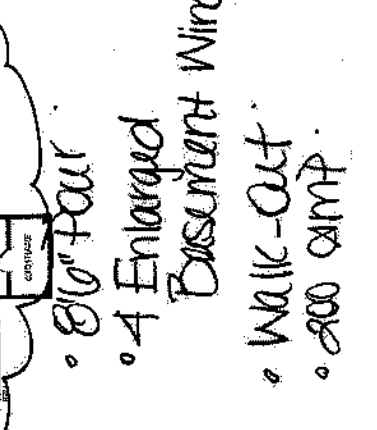 • 8'6" Pour
• 4 Enlarged
Basement Win
• Walk-Out
• 200 amp